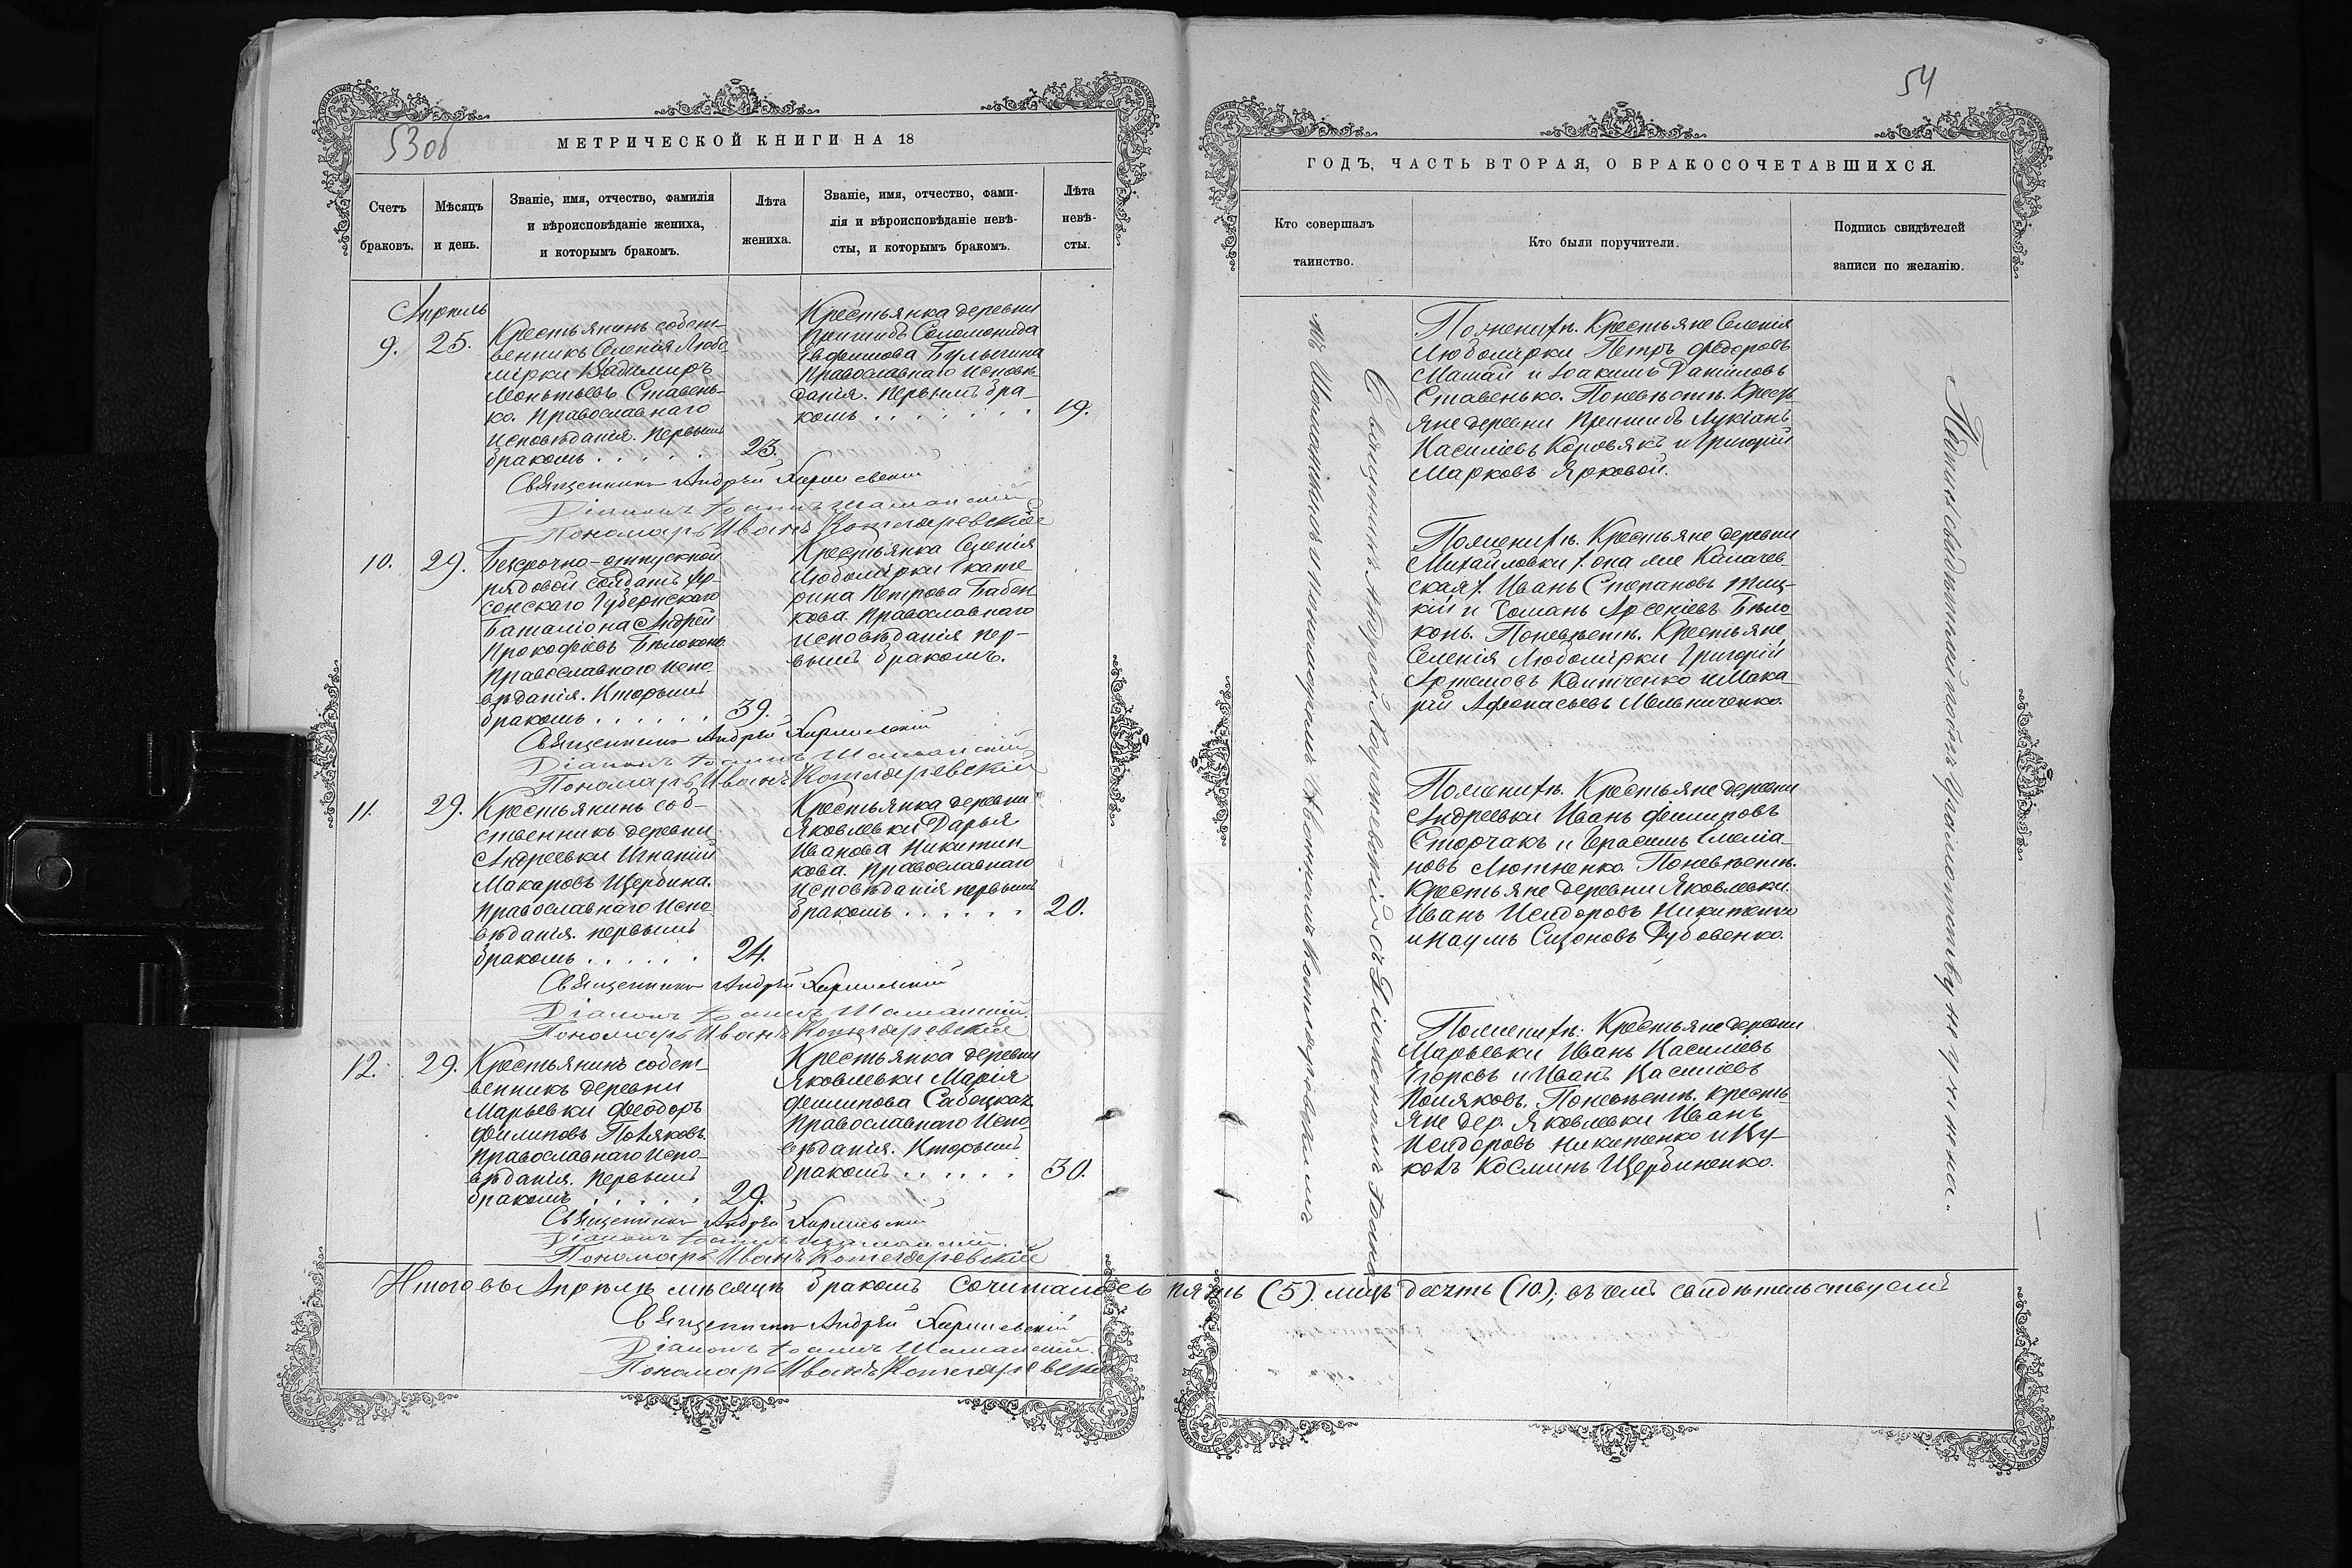 53об
МЕТРИЧЕСКОЙ КНИГИ НА 18
Счетъ браковъ.
Мѣсяцъ и день.
Званіе, имя, отчество, фамилія
и вѣроисповѣданіе жениха,
и которымъ бракомъ.
Лѣта жениха.
Званіе, имя, отчество, фами-
лія и вѣроисповѣданіе невѣ-
сты, и которымъ бракомъ.
Лѣта невѣ-
сты.
Апрѣль
9.
25.
Крестьянинъ собст-
венникъ Селенія Любо-
мірки Владиміръ
Леонтьевъ Ставень-
ко. Православнаго
Исповѣданія. Первымъ
бракомъ . . . . .
23.
Крестьянка деревни
Пришибъ Соломонида
Евфимова Булыгина
Православнаго Исповѣ-
данія. Первымъ бра-
комъ . . . . . . .
19.
Священникъ Андрей
Діаконъ Іоаннъ Шоманскій
Пономарь Иванъ Котляревскій
10.
29.
Безсрочно-отпускной
рядовой солдатъ Хер-
сонскаго Губернскаго
Баталіона Андрей
Прокофіевъ Бѣлоконь
Православнаго Испо-
вѣданія. Вторымъ
бракомъ . . . . . .
39.
Крестьянка Селенія
Любомірки Екате-
рина Петрова Бабен-
кова. Православнаго
исповѣданія пер-
вымъ бракомъ.
Священникъ Андрей
Діаконъ Іоаннъ Шоманскій
Пономарь Иванъ Котляревскій
11.
29.
Крестьянинъ соб-
ственникъ деревни
Андреевки Игнатій
Макаровъ Щербина.
Православнаго Испо-
вѣданія. первымъ
бракомъ . . . . . .
24.
Крестьянка деревни
Яковлевки Дарья
Иванова Никитин-
кова. Православнаго
Исповѣданія первымъ
бракомъ . . . . . .
20.
Священникъ Андрей
Діаконъ Іоаннъ Шоманскій.
Пономарь Иванъ Котляревскій
12.
29.
Крестьянинъ собст-
венникъ деревни
Марьевки Феодоръ
Филиповъ Поляковъ.
Православнаго Испо-
вѣданія. Первымъ
бракомъ . . . . . .
29.
Крестьянка деревни
Яковлевки Марія
Филипова
Православнаго Испо-
вѣданія. Вторымъ
бракомъ . . . . . .
30.
Священникъ Андрей
Діаконъ Іоаннъ Шоманскій.
Пономарь Иванъ Котляревскій
Итого въ Апрѣлѣ мѣсяцѣ бракомъ сочиталось пять (5). лицъ десять (10.); въ чемъ свидѣтельствуемъ
Священникъ Андрей
Діаконъ Іоаннъ Шоманскій.
Пономарь Иванъ Котляревскій
54
ГОДЪ, ЧАСТЬ ВТОРАЯ, О БРАКОСОЧЕТАВШИХСЯ.
Кто совершалъ
таинство.
Кто были поручители.
Подпись свидѣтелей
записи по желанію.
Священникъ Андрей съ Діакономъ Іоанно-
мъ Шоманскимъ и пономаремъ Иваномъ Котляревскимъ
По женихѣ. Крестьяне Селенія
Любомірки Петръ Федоровъ
Мамай и Іоакимъ Даниловъ
Ставенько. По невѣстѣ. Кресть-
яне деревни Пришибъ Лукіанъ
Василіевъ Коровякъ и Григорій
Марковъ Ярковой.
По женихѣ. Крестьяне деревни
Михайловки /: она же Калачев-
ская /. Иванъ Степановъ
кій и Романъ Арсеніевъ Бѣло-
конь. По невѣстѣ. Крестьяне
Селенія Любомірки Григорій
Артемовъ Квитченко и Мака-
рій Афонасьевъ Мельниченко.
По женихѣ. Крестьяне деревни
Андреевки Иванъ Филиповъ
Сторчакъ и Герасимъ Емеліа-
новъ Лютненко. По невѣстѣ.
Крестьяне деревни Яковлевки.
Иванъ Исидоровъ Никитенко
и Наумъ Сизоновъ Дубовенко.
По женихѣ. Крестьяне деревни
Марьевки Иванъ Василіевъ
Егоровъ и Иванъ Василіевъ
Поляковъ. По невѣстѣ. Кресть-
яне дер. Яковлевки Иванъ
Исидоровъ Никитенко и Ву-
колъ Косминъ Щербиненко.
Подпись свидѣтелей по неграмотству не учинена.